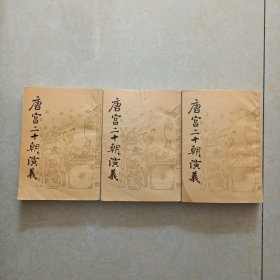 唐宫二十朝演義
唐宫二十朝演義
唐宫二十朝演義